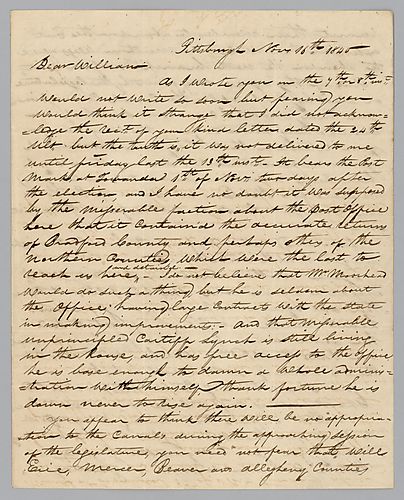 Pittsburgh Nov 16th 1840
Dear William
As I wrote you on the 7th or 8th inst
Would not write so soon but fearing you
Would think it strange that I did not acknow-
ledge the rect of your kind letter dated the 24th
Ult. but the truth is, it was not delivered to me
until friday last the 13th inst. It bears the Post
Mark at Towanda 1st of Nov. two days after
the election and I have no doubt it was supposed
by the Misserable faction about the Post Office
here that it contained the accurate returns
of Bradford County and perhaps othes of the
Northern Counties, which were the last to
reach us here, and detained I do not believe that Mr Moorhead
Would do such a thing but he is seldom about
the Office, having large Contracts With the State
in making improvements. - And that Misserable
unprincipled Caitiff Lynch is still living
in the house, and has free access to the Office
he is base enough to damn a Whole adminis-
tration With himself, thank fortune he is
down never to rise again.
You appear to think there Will be no appropria-
tion to the Canals during the approaching session
of the legislature, you need not fear that Will
Erie, Mercer, Beaver and allegheny Counties